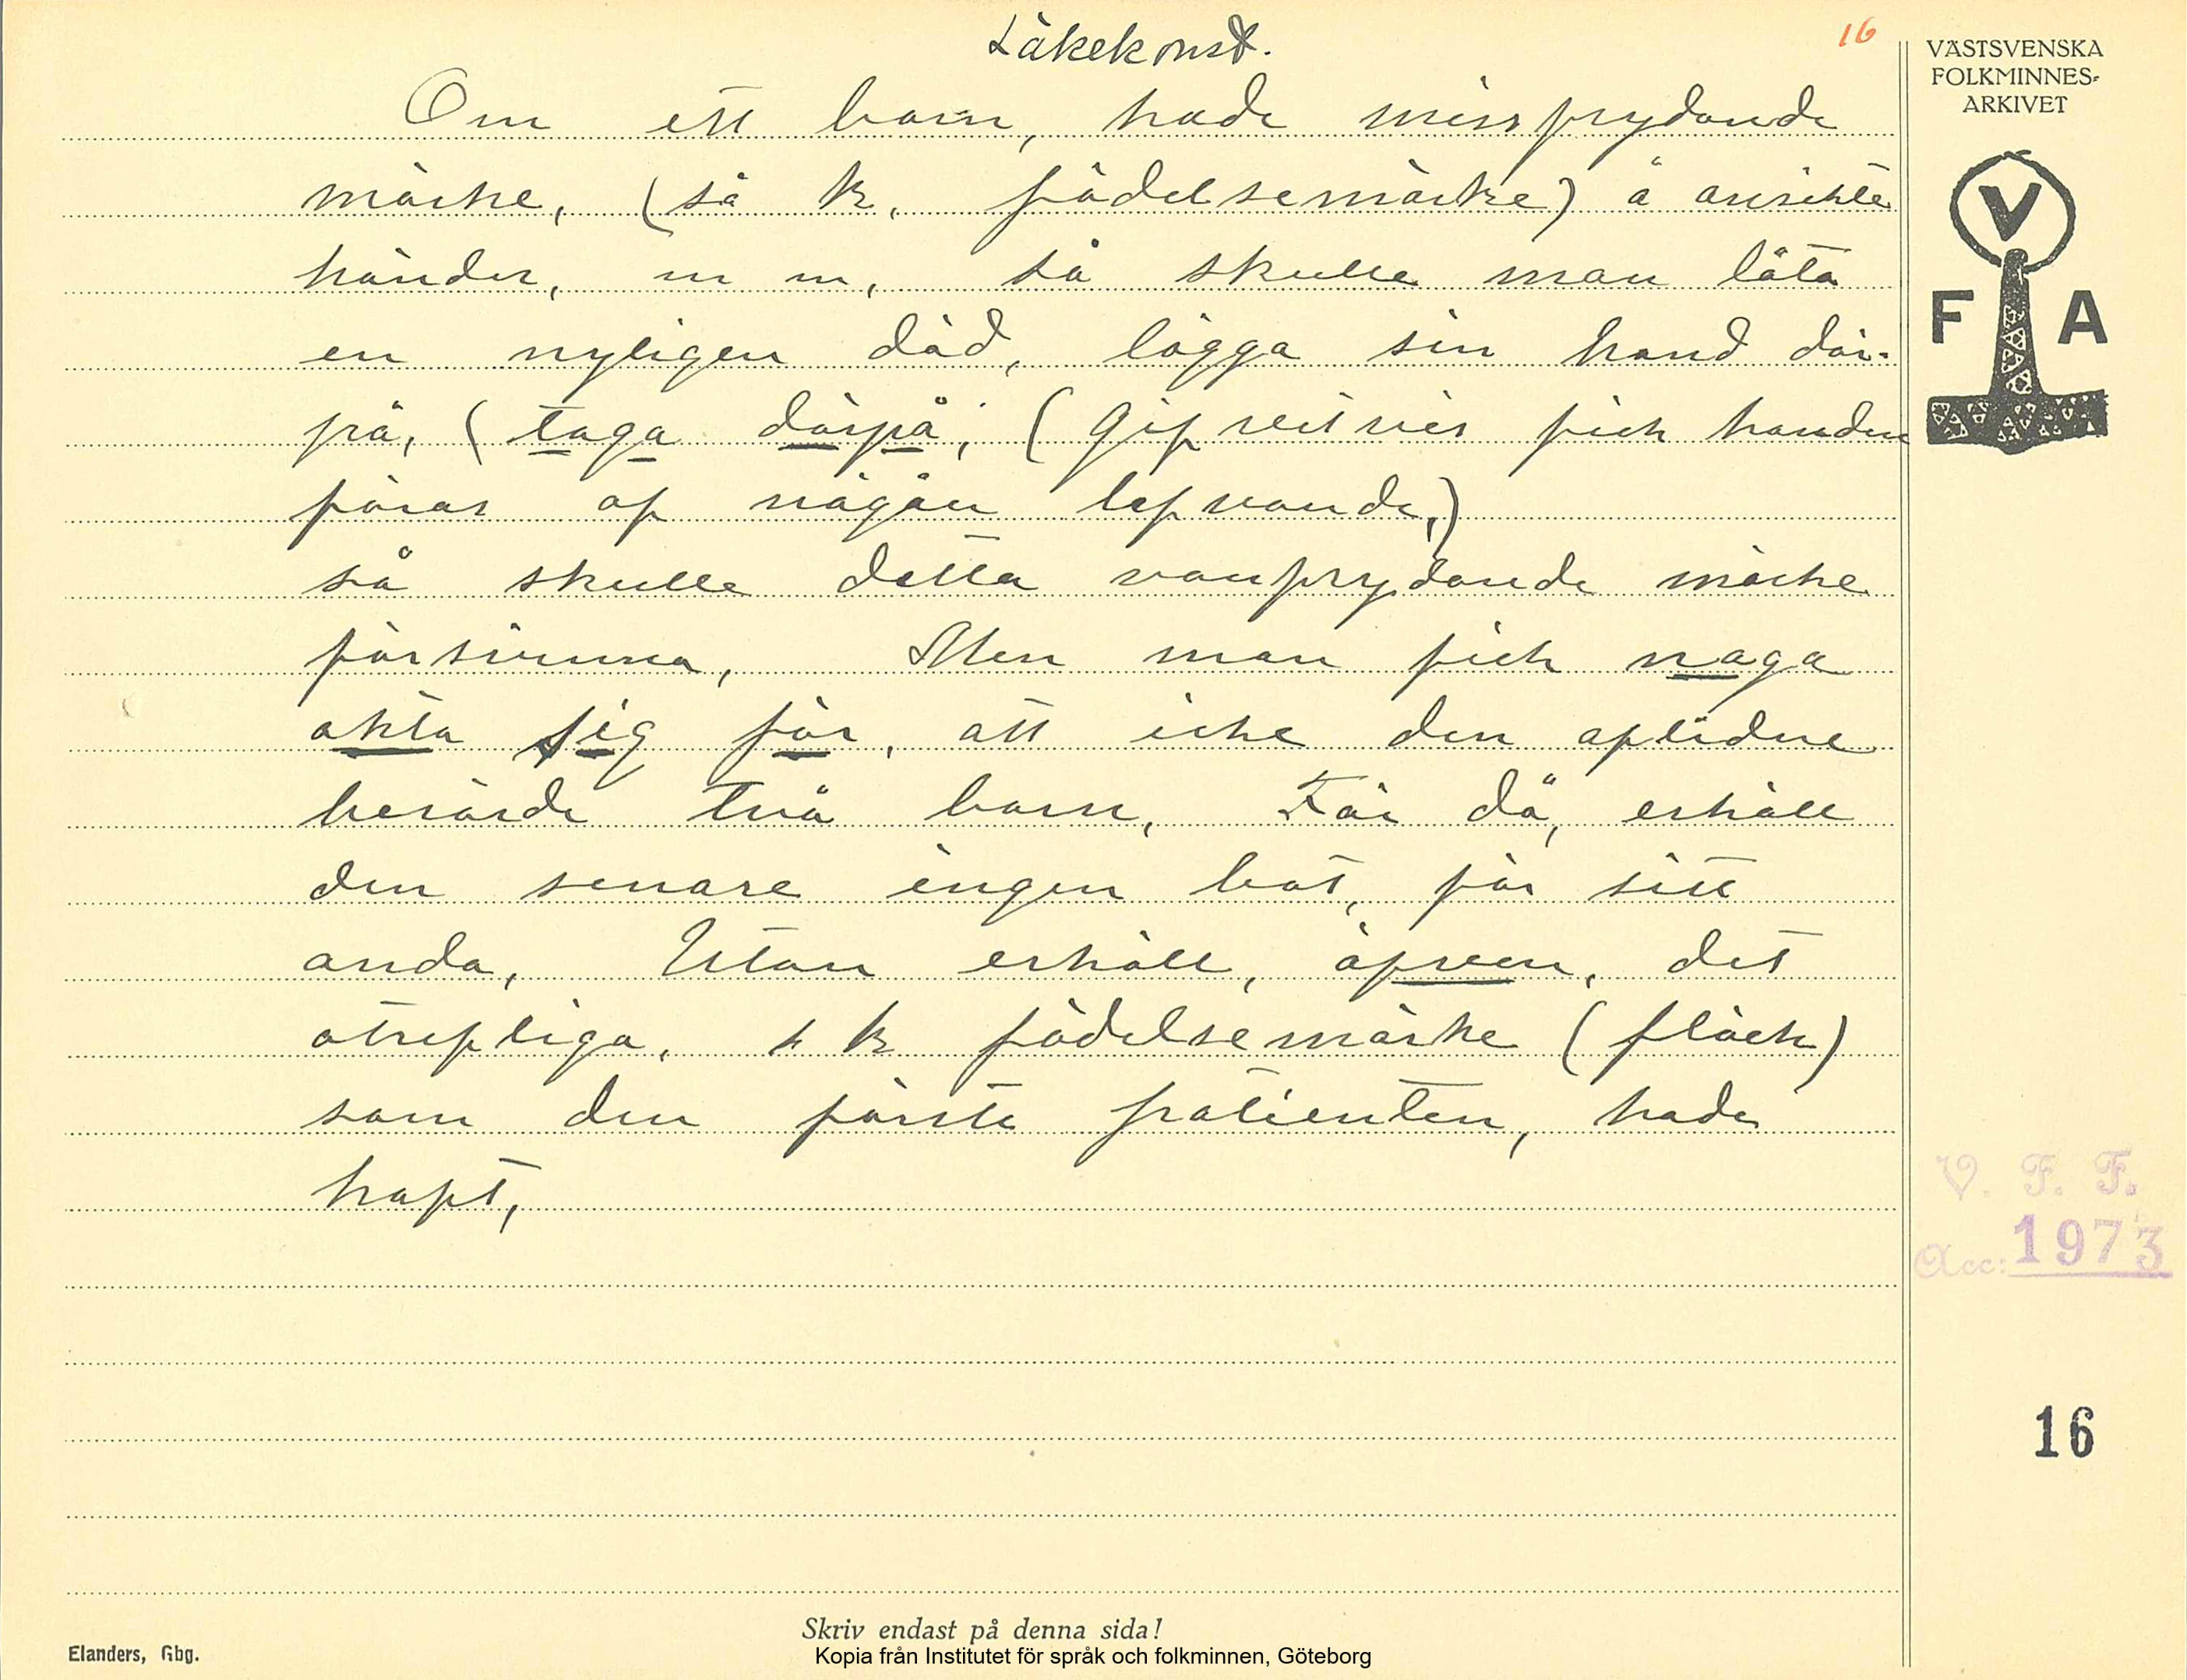 Läkekonst.
16
VÄSTSVENSKA
FOLKMINNES-
ARKIVET
V
F A
Om ett barn, hade missprydande
märke, (så k, födelsemärke) å ansikte
händer, m m, så skulle man låta
en nyligen död, lägga sin hand där-
på, (taga därpå, (Gifvetvis fick handen
föras af någon lefvande,)
så skulle detta vanprydande märke
försvinna, Men man fick noga
akta sig för, att icke den aflidne
berörde två barn, För då, erhöll
den senare ingen bot, för sitt
onda, Utan erhöll, äfven, det
otrefliga, s k födelsemärke (fläck)
som den förste patienten, hade
haft,
V. F. F.
Acc: 1973
16
Skriv endast på denna sida!
Elanders, Gbg.
Kopia från Institutet för språk och folkminnen, Göteborg